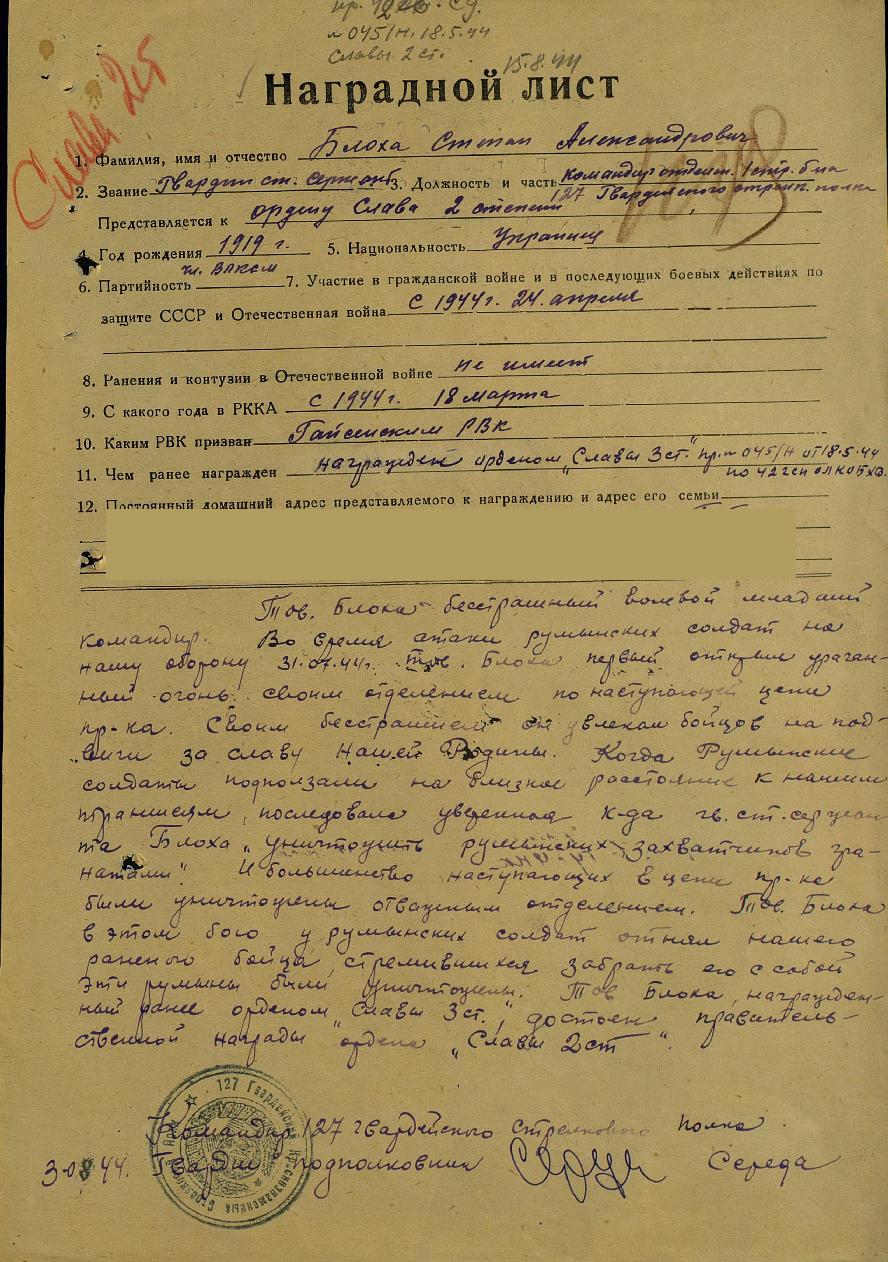 045/н. 18.5.44
Славы 2 ст.
15.8.44
Слава 2 ст
Наградной лист
1. Фамилия, имя и отчество Блоха Степан Александрович
2. Звание Гвардии ст. сержант 3. Должность и часть Командир отделен. 1 стр. б-на
127 Гвардейского стрелк. полка
Представляется к ордену Слава 2 степени
4. Год рождения 1919 г. 5. Национальность Украинец
6. Партийность чл. ВЛКСМ 7. Участие в гражданской войне и в последующих боевых действиях по
защите СССР и Отечественная война С 1944 г. 24. апреля
8. Ранения и контузии в Отечественной войне не имеет
9. С какого года в РККА С 1944 г. 18 марта
10. Каким РВК призван Гайсинским РВК
11. Чем ранее награжден награжден орденом „Славы 3 ст." пр. № 045/н от 18.5.44
по 42 гсп
12. Постоянный домашний адрес представляемого к награждению и адрес его семьи
Тов. Блоха бесстрашный волевой младший
командир. Во время атаки румынских солдат на
нашу оборону 31.07.44 г. тов. Блоха первый открыл ураган-
ный огонь своим отделением по наступающей цепи
пр-ка. Своим бесстрашием он увлекал бойцов на под-
виги за славу нашей Родины. Когда Румынские
солдаты подползали на близкое расстояние к нашим
траншеям, последовала уверенная к-да гв. ст. сержан
та Блоха „уничтожить румынских захватчиков гра-
натами". И большинство наступающих в цепи пр-ка
были уничтожены отважным отделением. Тов. Блоха
в этом бою у румынских солдат отнял нашего
раненого бойца, стремившихся забрать его с собой
Эти румыны были уничтожены. Тов Блоха, награжден-
ный ранее орденом „Славы 3 ст.", достоен правитель-
ственной награды ордена „Славы 2 ст".
127 Гвардейский Краснознаменный
Командир 127 гвардейского стрелкового полка
3.08.44. Гвардии подполковник Середа